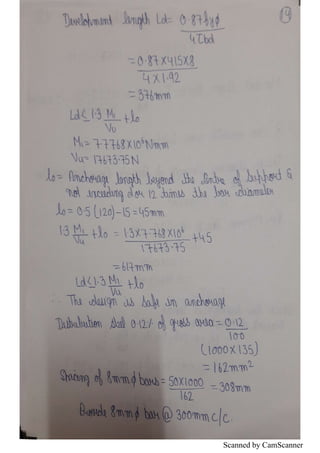 14
Development length Ld = 0.87fyϕ
4τbd
= 0.87X415X8
4X1.92
= 376mm
Ld ≤ 1.3 M1 + lo
Vu
M1 = 7.7768X10⁶Nmm
Vu = 17673.75N
lo = Anchorage length beyond the centre of support &
not exceeding d or 12 times the bar diameter
lo = 0.5(120)-15 = 45mm
1.3 M1 + lo = 1.3X7.768X10⁶ + 45
Vu 17673.75
= 617mm
Ld < 1.3 M1 + lo
Vu
∴ The design is safe in anchorage
Distribution steel 0.12% of gross area = 0.12
100
(1000X135)
= 162mm²
Spacing of 8mmϕ bars = 50X1000 = 308mm
162
Provide 8mmϕ bar @ 300mm c/c.
Scanned by CamScanner